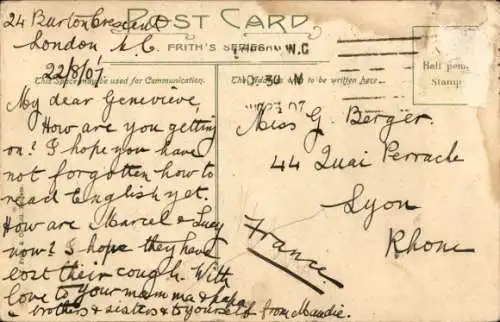 24 Burton Crescent
London W.C.
22/8/07
POST CARD
FRITH'S SERIES
W.C
10.30 M
07
Half penny
Stamp
This Space may be used for Communication.
The Address only to be written here
My dear Genevieve,
How are you getting
on? I hope you have
not forgotten how to
read English yet.
How are Marcel & Lucy
now? I hope they have
lost their cough. With
love to your mamma & papa
brothers & sisters & to yourself from Maudie.
Miss G. Berger.
44 Quai Perrache
Lyon
Rhone
France.